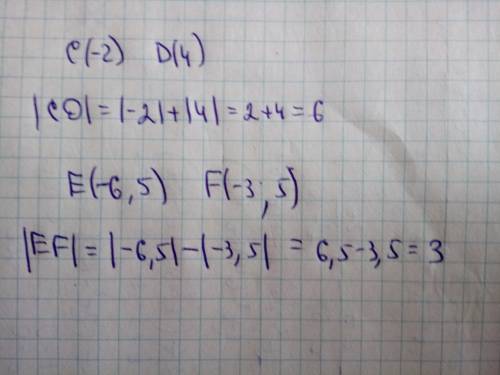 C(-2) D(4)
|CD| = |-2|+|4| = 2+4 = 6
E(-6,5) F(-3,5)
|EF| = |-6,5|-|-3,5| = 6,5-3,5 = 3